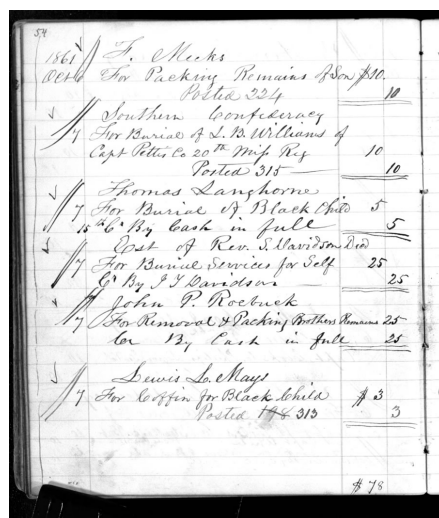 54
1861 F. Meeks
Oct 6 For Packing Remains of Son $10.
Posted 224 10
Southern Confederacy
7 For Burial of L. B. Williams of
Capt Pettis Co 20th Miss Reg 10
Posted 315 10
Thomas Langhorne
7 For Burial of Black Child 5
15th Cr By Cash in full 5
Est of Rev. S. Davidson Decd
7 For Burial Services for Self 25
Cr By J T Davidson 25
John P. Roebuck
7 For Removal & Packing Brothers Remains 25
Cr By Cash in full 25
Lewis L. Mays
7 For Coffin for Black Child $ 3
Posted 198 313 3
$ 78